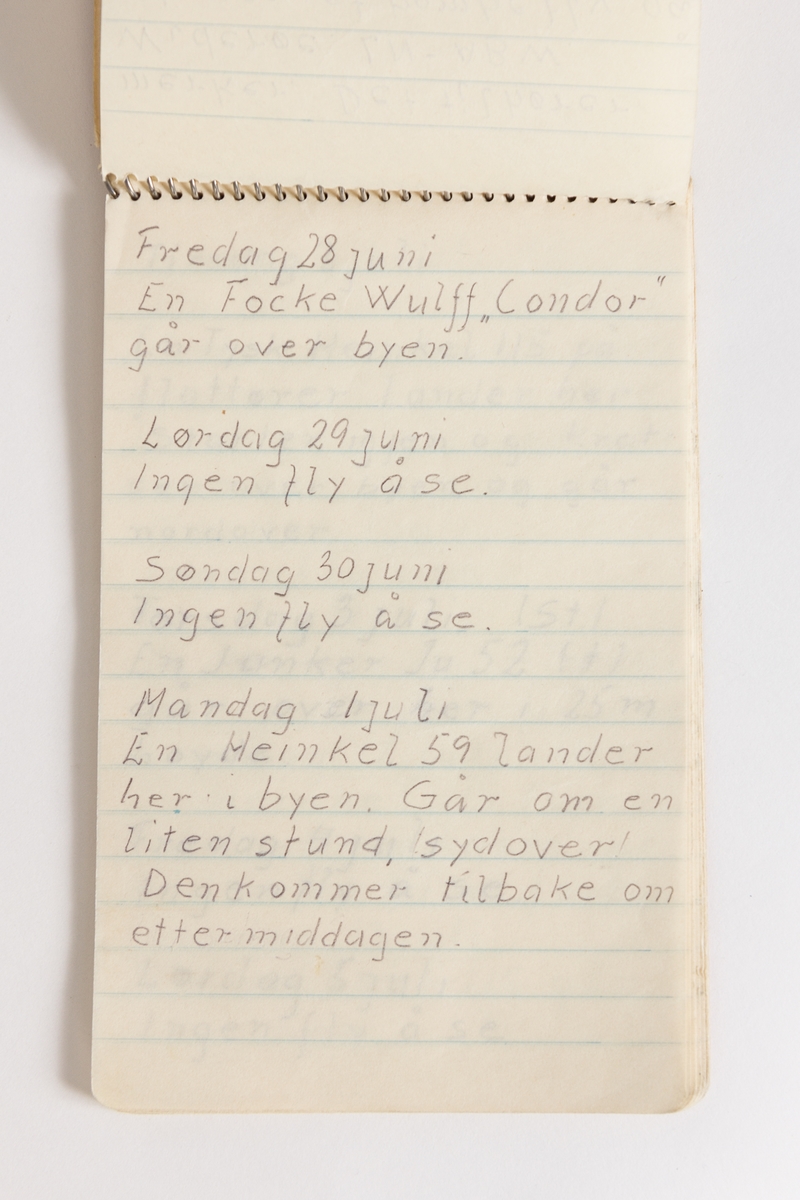 Fredag 28 juni
En Focke Wulff „Condor"
går over byen.
Lørdag 29 juni
Ingen fly å se.
Søndag 30 juni
Ingen fly å se.
Mandag 1 juli
En Heinkel 59 lander
her i byen. Går om en
liten stund, (sydover)
Den kommer tilbake om
ettermiddagen.